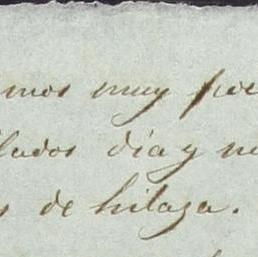 mos muy poc
lados día y no
s de hilaza.